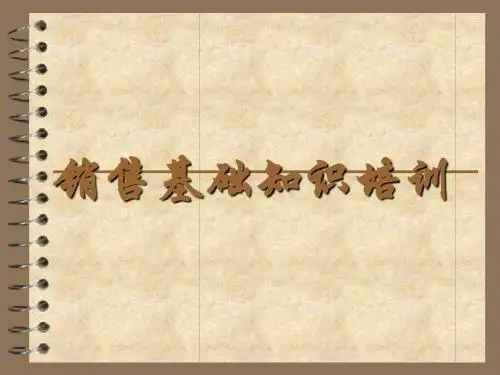 销售基础知识培训